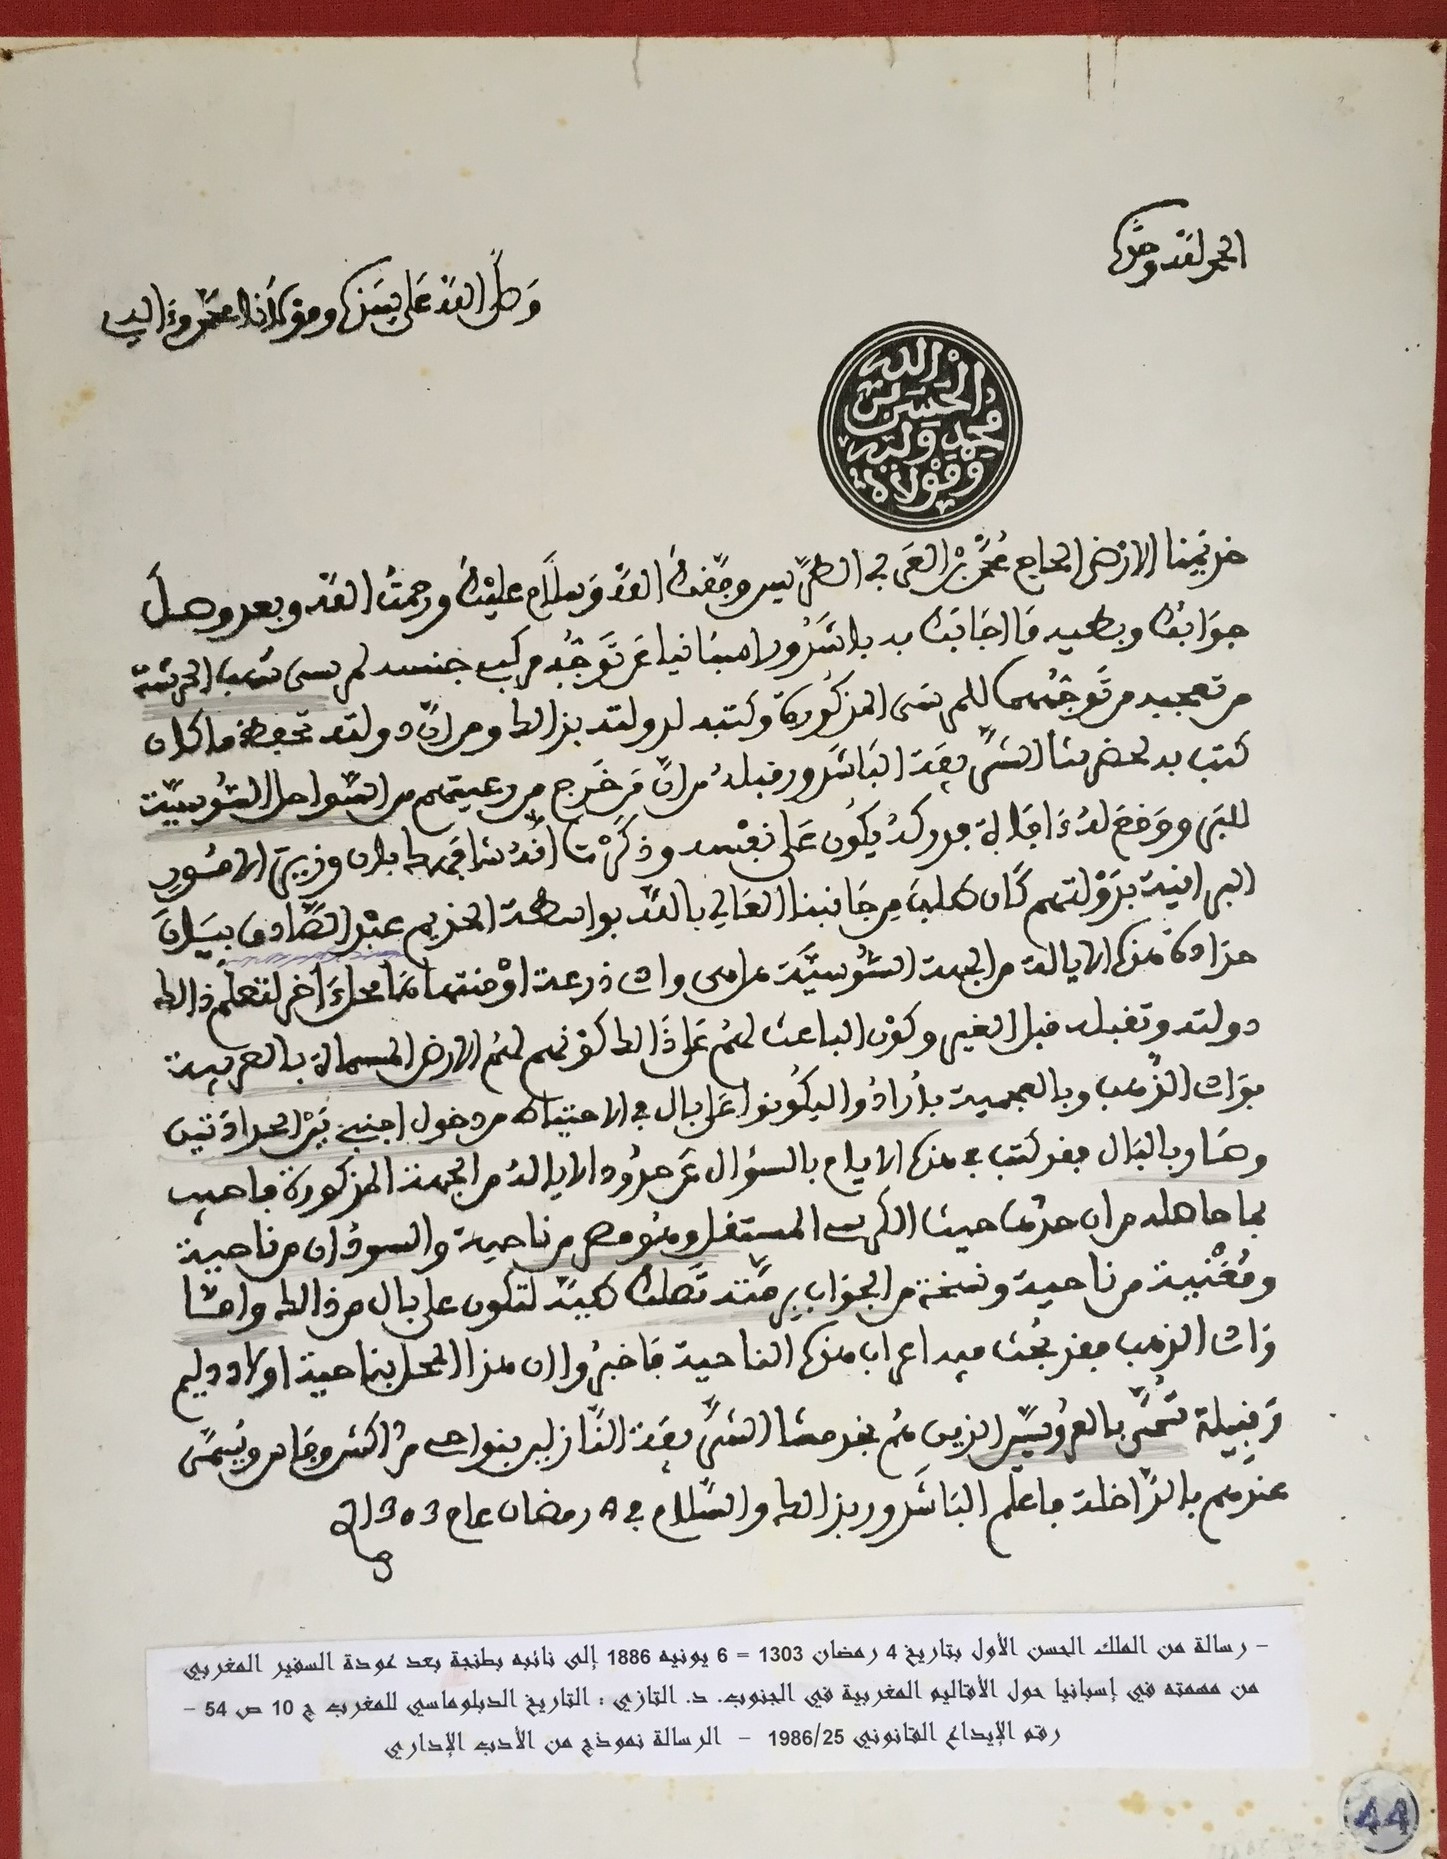 الحمد لله وحده
وصلى الله على سيدنا ومولانا محمد وءاله
الله
الحسن بن
محمد وليه
ومولاه
خديمنا الارضى الحاج محمد بن العربي الطريس وفقك الله وسلام عليك ورحمت الله وبعد وصل
جوابك وبطيه ما اجابك به باشدور اصبانيا عن توجه مركب جنسه لمرسى
من توجههما للمرسى المذكورة وكتبه لدولته بذالك ومن ان دولته تحفظ ما كان
كتب به لحضرتنا الشريفة الباشدور قبله من ان من خرج من رعيتهم من السواحل السوسية
للبر ووقع له يكون على نفسه وذكرت انه شافهك بان وزير الامور
البرانية بدولتهم كان طلب من جانبنا العالي بالله بواسطة الخديم عبد الصادق بيان
حدادة هذه الايالة من الجهة السوسية هل هي واد درعة او منتهاها محل ءاخر لتعلم ذالك
دولته وتقبله قبل الغير وكون الباعث لهم على ذالك كونهم لهم الارض المسماة بالعربية
بواد الذهب وبالعجمية ليكونوا على بال في الاحتياط من دخول اجنبي بين الحدادتين
وصار بالبال فقد كتب في هذه الايام بالسؤال عن حدود الايالة من الجهة المذكورة فاجيب
بما حاصله من ان حدها حيث المستقل ومنو مصر من ناحية والسودان من ناحية
ومغنية من ناحية ونسخة من الجواب برمته تصلك طيه لتكون على بال من ذالك واما
واد الذهب فقد بحث فيه اعراب هذه الناحية فاخبروا ان هذا المحل بناحية اولاد دليم
وقبيلة تسمى بالعروسيين الذين هم بخدمتنا الشريفة النازلين بنواحي مراكش وفاس ويسمى
عندهم بالداخلة فاعلم الباشدور بذالك والسلام في 4 رمضان عام 1303
- رسالة من الملك الحسن الأول بتاريخ 4 رمضان 1303 = 6 يونيه 1886 إلى نائبه بطنجة بعد عودة السفير المغربي
من مهمته في إسبانيا حول الأقاليم المغربية في الجنوب. د. التازي : التاريخ الدبلوماسي للمغرب ج 10 ص 54 -
رقم الإيداع القانوني 1986/25 - الرسالة نموذج من الأدب الإداري
44